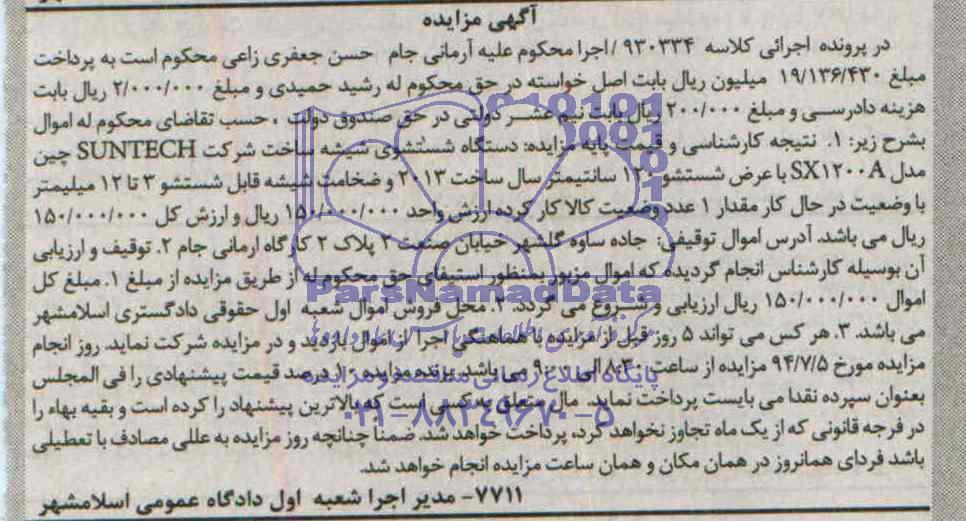 آگهی مزایده
در پرونده اجرائی کلاسه ۹۳۰۳۳۴/اجرا محکوم علیه آرمانی جام حسن جعفری زاعی محکوم است به پرداخت
مبلغ ۱۹/۱۳۶/۴۳۰ میلیون ریال بابت اصل خواسته در حق محکوم له رشید حمیدی و مبلغ ۲/۰۰۰/۰۰۰ ریال بابت
هزینه دادرسی و مبلغ ۲۰۰/۰۰۰ ریال بابت نیم عشر دولتی در حق صندوق دولت ، حسب تقاضای محکوم له اموال
بشرح زیر: ۱. نتیجه کارشناسی و قیمت پایه مزایده: دستگاه شستشوی شیشه ساخت شرکت SUNTECH چین
مدل SX۱۲۰۰A با عرض شستشو ۱۲۰ سانتیمتر سال ساخت ۲۰۱۳ و ضخامت شیشه قابل شستشو ۳ تا ۱۲ میلیمتر
با وضعیت در حال کار مقدار ۱ عدد وضعیت کالا کار کرده ارزش واحد ۱۵۰/۰۰۰/۰۰۰ ریال و ارزش کل ۱۵۰/۰۰۰/۰۰۰
ریال می باشد. آدرس اموال توقیفی: جاده ساوه گلشهر خیابان صنعت ۳ پلاک ۲ کارگاه ارمانی جام ۲. توقیف و ارزیابی
آن بوسیله کارشناس انجام گردیده که اموال مزبور بمنظور استیفای حق محکوم له از طریق مزایده از مبلغ ۱. مبلغ کل
اموال ۱۵۰/۰۰۰/۰۰۰ ریال ارزیابی و شروع می گردد. ۲. محل فروش اموال شعبه اول حقوقی دادگستری اسلامشهر
می باشد. ۳. هر کس می تواند ۵ روز قبل از مزایده با هماهنگی اجرا از اموال بازدید و در مزایده شرکت نماید. روز انجام
مزایده مورخ ۹۴/۷/۵ مزایده از ساعت ۸:۳۰ الی ۹:۰۰ می باشد. برنده مزایده ۱۰ درصد قیمت پیشنهادی را فی المجلس
بعنوان سپرده نقدا می بایست پرداخت نماید. مال متعلق به کسی است که بالاترین پیشنهاد را کرده است و بقیه بهاء را
در فرجه قانونی که از یک ماه تجاوز نخواهد کرد، پرداخت خواهد شد. ضمنا چنانچه روز مزایده به عللی مصادف با تعطیلی
باشد فردای همانروز در همان مکان و همان ساعت مزایده انجام خواهد شد.
۷۷۱۱- مدیر اجرا شعبه اول دادگاه عمومی اسلامشهر
ParsNamadData
پایگاه اطلاع رسانی مناقصه و مزایده
۰۲۱-۸۸۳۴۹۶۷۰-۵